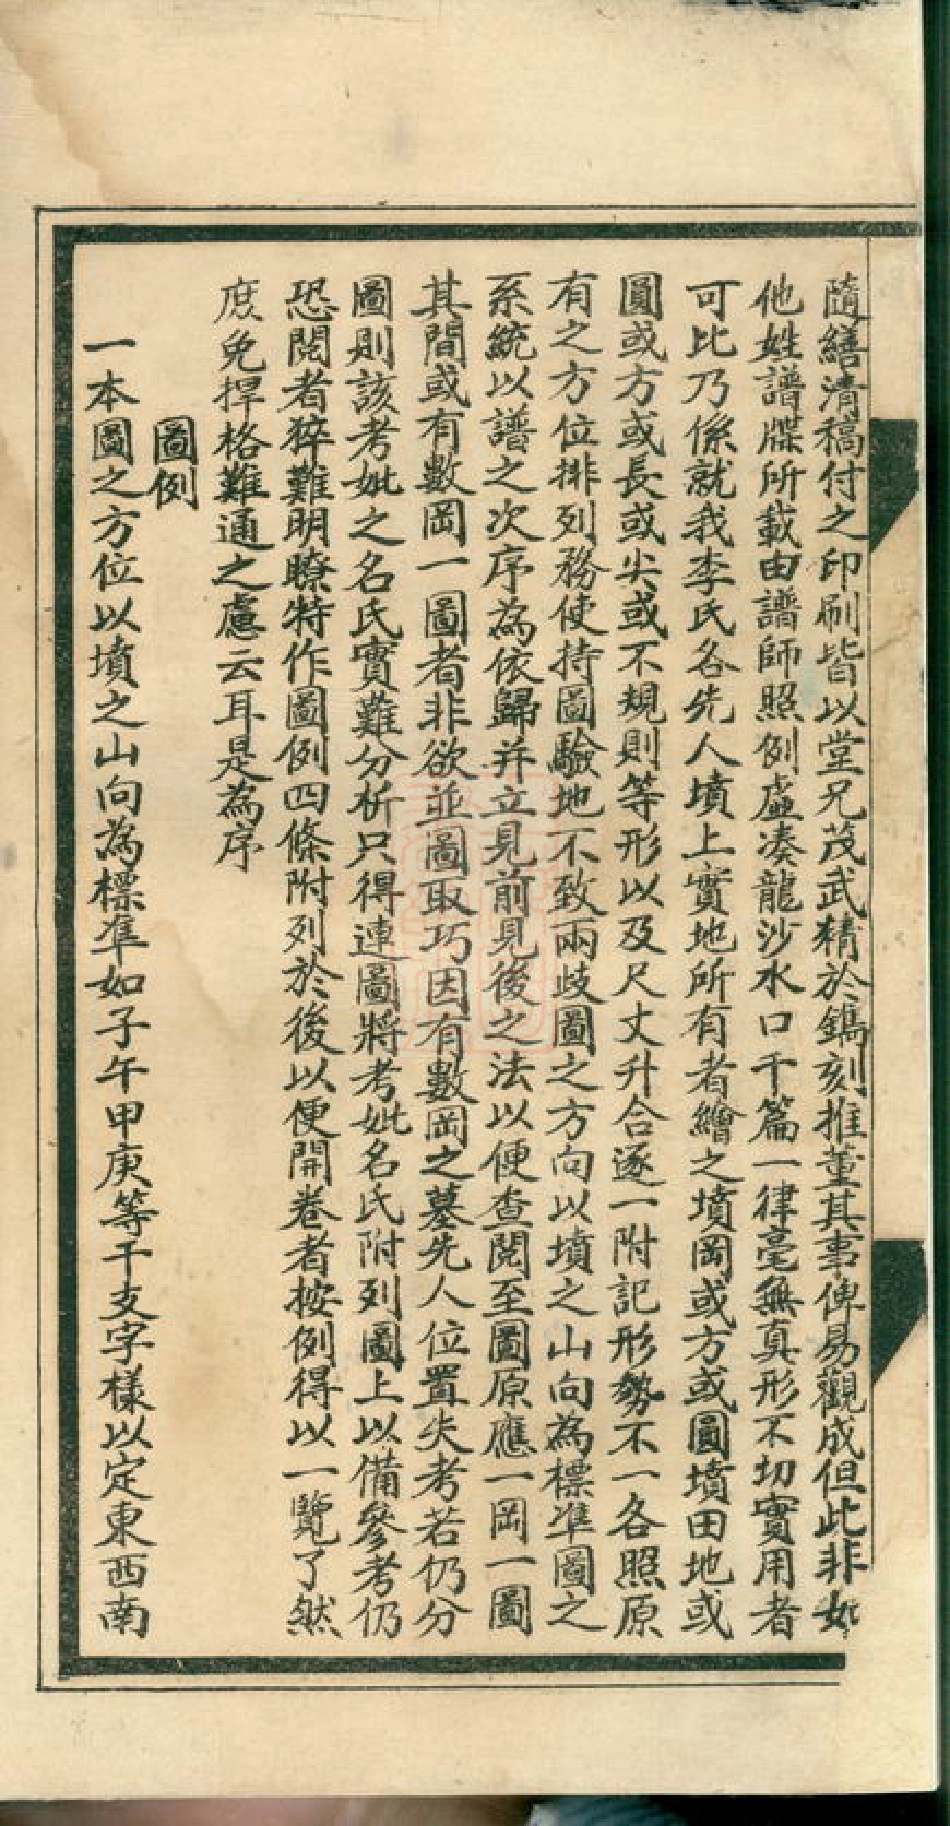 隨繕清稿付之印刷皆以堂兄茂武精於鐫刻推董其事俾易觀成但此非如
他姓譜牒所載由譜師照例虛凑龍沙水口千篇一律毫無真形不切實用者
可比乃係就我李氏各先人墳上實地所有者繪之墳岡或方或圓墳田地或
圓或方或長或尖或不規則等形以及尺丈升合逐一附記形勢不一各照原
有之方位排列務使持圖驗地不致兩歧圖之方向以墳之山向為標準圖之
系統以譜之次序為依歸并立見前見後之法以便查閱至圖原應一岡一圖
其間或有數岡一圖者非欲並圖取巧因有數岡之墓先人位置失考若仍分
圖則該考妣之名氏實難分析只得連圖將考妣名氏附列圖上以備參考仍
恐閱者猝難明瞭特作圖例四條附列於後以便開卷者按例得以一覽了然
庶免捍格難通之慮云耳是為序
圖例
一本圖之方位以墳之山向為標準如子午甲庚等干支字樣以定東西南